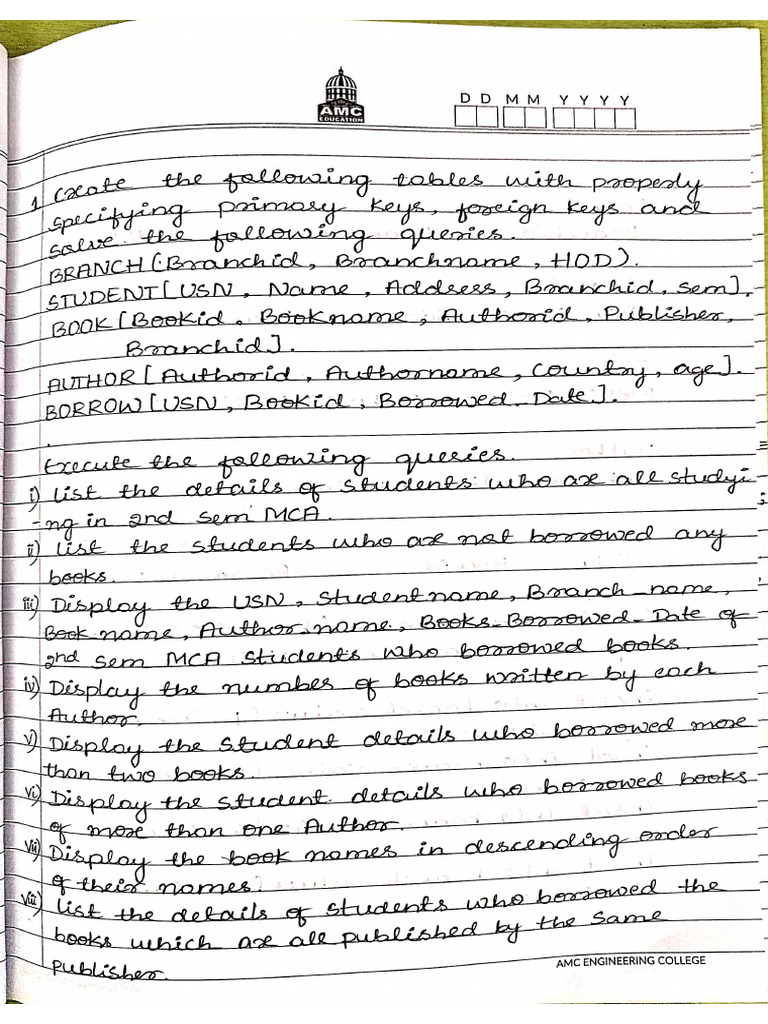 AMC
EDUCATION
D D M M Y Y Y Y
1 Create the following tables with properly
specifying primary keys, foreign keys and
solve the following queries.
BRANCH (Branchid, Branchname, HOD).
STUDENT [USN, Name, Address, Branchid, sem].
BOOK [Bookid, Bookname, Authorid, Publisher,
Branchid].
AUTHOR [Authorid, Authorname, Country, age].
BORROW [USN, Bookid, Borrowed_Date].
Execute the following queries.
i) List the details of students who are all studyi-
-ng in 2nd sem MCA.
ii) List the students who are not borrowed any
books.
iii) Display the USN, Student name, Branch_name,
Book name, Author_name, Books_Borrowed_Date of
2nd sem MCA Students who borrowed books.
iv) Display the number of books written by each
Author.
v) Display the student details who borrowed more
than two books.
vi) Display the student details who borrowed books
of more than one Author.
vii) Display the book names in descending order
of their names.
viii) List the details of students who borrowed the
books which are all published by the same
publisher.
AMC ENGINEERING COLLEGE